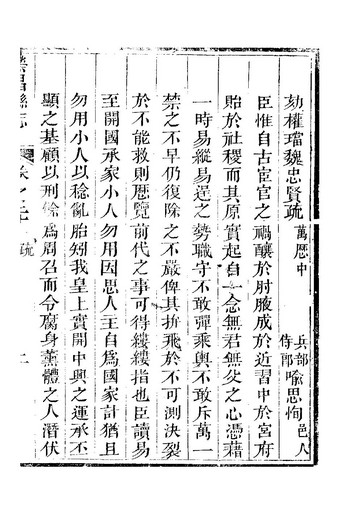 劾權璫魏忠賢疏 萬曆中 兵部侍郎 喻思恂 邑人
臣惟自古宦官之禍釀於肘腋成於近習中於宮府
貽於社稷而其原實起自一念無君無父之心憑藉
一時易縱易逞之勢職守不敢彈乘輿不敢斥萬一
禁之不早仍復除之不嚴俾其拚飛於不可測決裂
於不能救則歷覽前代之事可得縷縷指也臣讀易
至開國承家小人勿用因思人主自爲國家計猶且
勿用小人以稔亂胎矧我皇上實開中興之運承丕
顯之基顧以刑餘爲周召而令腐身薰體之人潛伏
榮昌縣志 卷之二十 疏 二